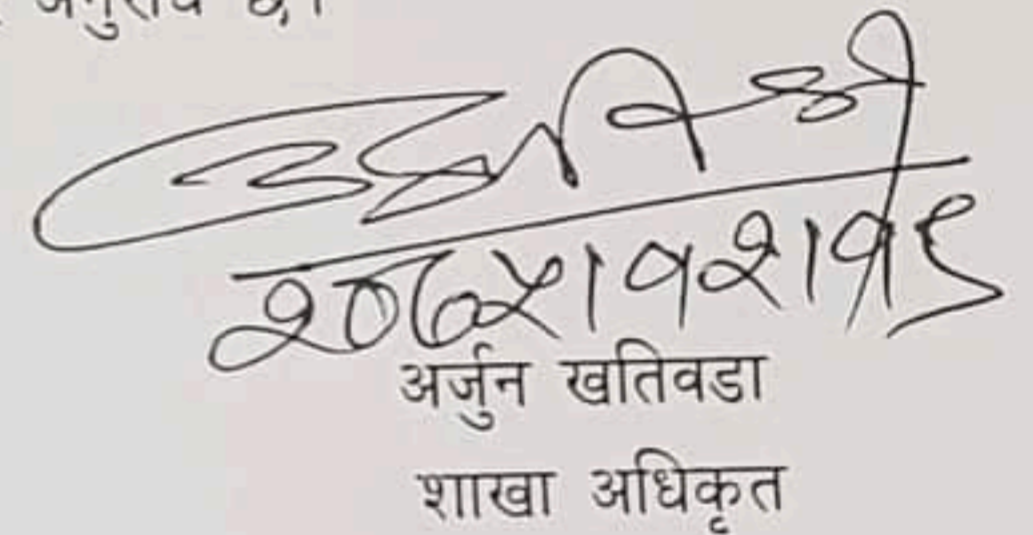 अनुरोध छ।
२०७५।१२।१९
अर्जुन खतिवडा
शाखा अधिकृत